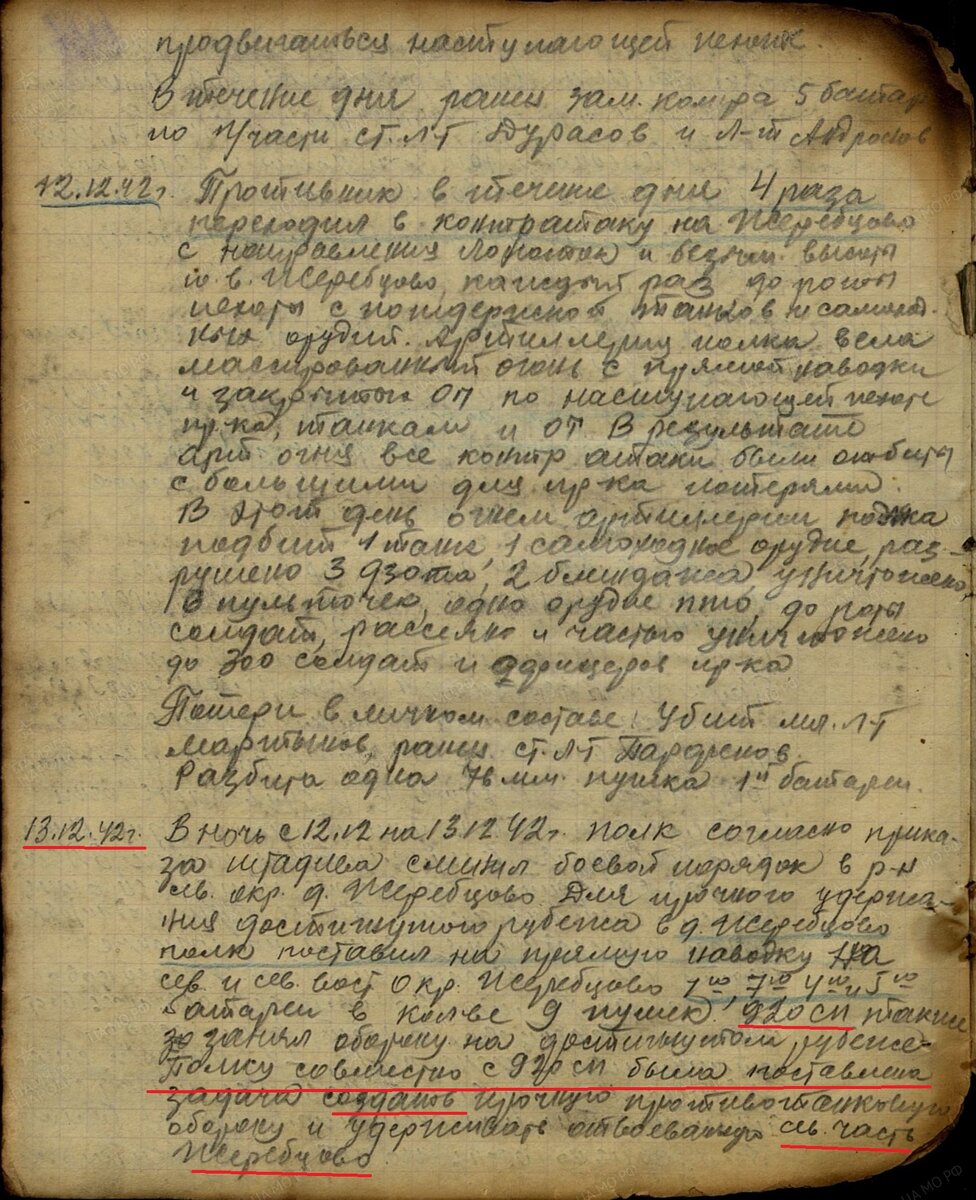 продвигаться наступающей пехоте.
В течение дня ранен зам. комра 5 батар
по п/части ст. л-т Дурасов и л-т Андронов
12.12.42г. Противник в течение дня 4 раза
переходил в контратаку на Жеребцово
с направления Лопоток и безым. высоты
ю.в. Жеребцово, каждый раз до роты
пехоты с поддержкой танков и самоход-
ных орудий. Артиллерия полка вела
массированный огонь с прямой наводки
и закрытых ОП по наступающей пехоте
пр-ка, танкам и ОТ. В результате
арт огня все контр атаки были отбиты
с большими для пр-ка потерями.
В этот день огнем артиллерии полка
подбит 1 танк 1 самоходное орудие, раз-
рушено 3 дзота, 2 блиндажа, уничтожено
пульточек, одно орудие пто, до роты
солдат, рассеяно и частью уничтожено
до 300 солдат и офицеров пр-ка
Потери в личном составе: Убит мл. л-т
Мартынов, ранен ст. л-т Парфенов
Разбита одна 76 мм. пушка 1й батареи.
13.12.42г. В ночь с 12.12 на 13.12.42г. полк согласно прика-
за штадива сменил боевой порядок в р-н
св. окр. д. Жеребцово. Для прочного удержа-
ния достигнутого рубежа в д. Жеребцово
полк поставил на прямую наводку на
сев. и сев. вост окр. Жеребцово 1ую 7ую 4ую и 5ую
батареи в кол-ве 9 пушек, 920 сп также
занял оборону на достигнутом рубеже.
Полку совместно с 920 сп была поставлена
задача создать прочную противотанковую
оборону и удерживать отвоеванную св. часть
Жеребцово